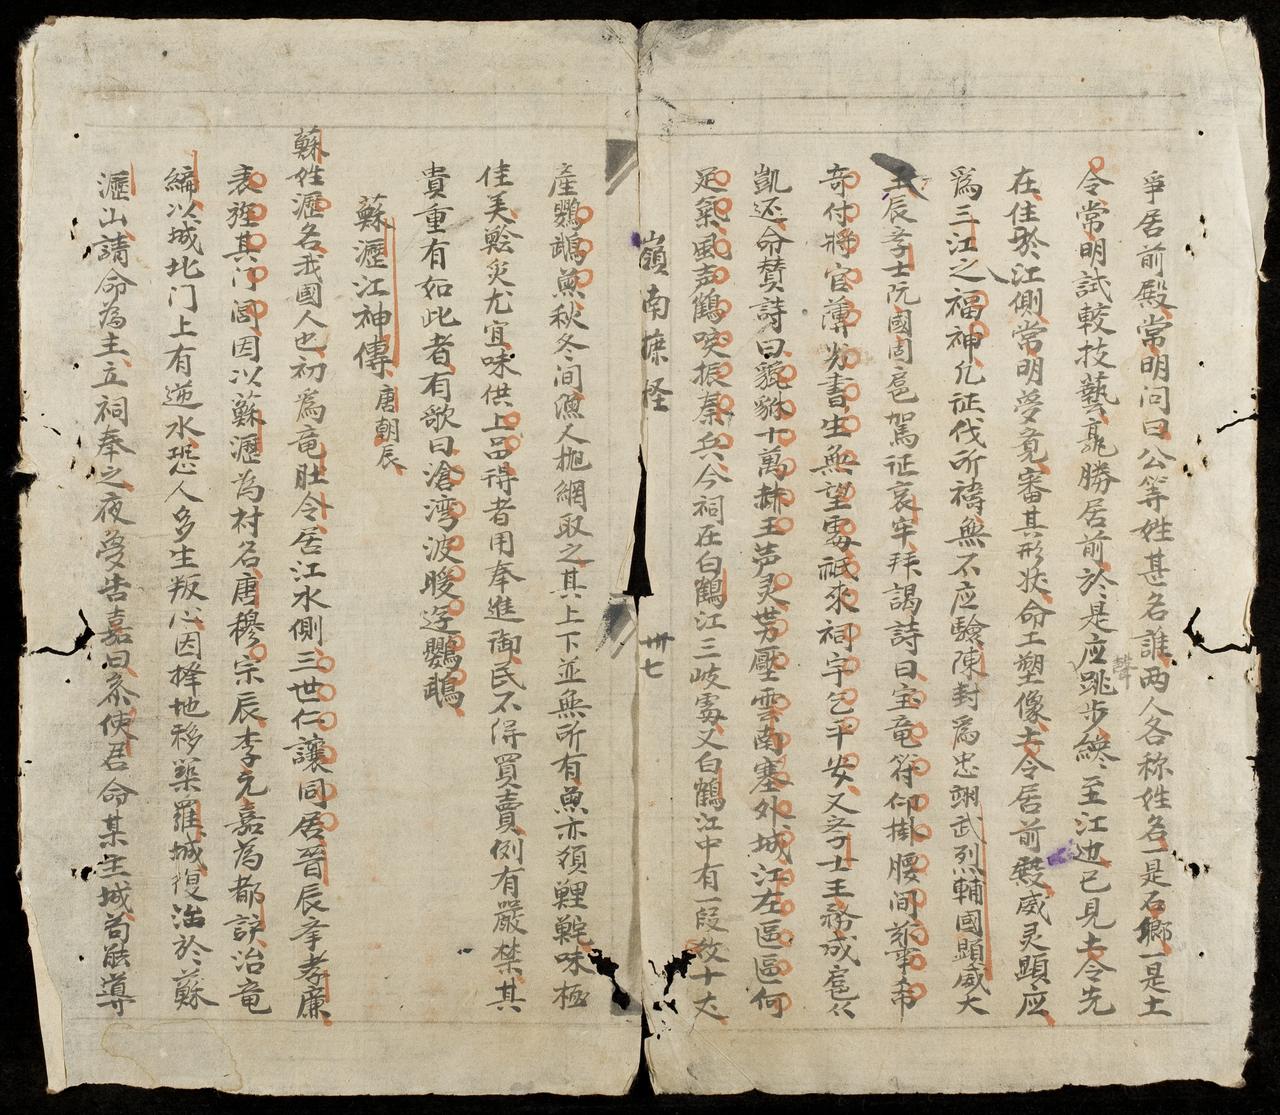 爭居前殿常明问曰公等姓甚名誰两人各称姓名一是石鄉一是土
令常明試較技藝先勝居前於是应聲跳步纔至江边已見土令先
在住於江側常明夢覚審其形状命工塑像土令居前殿威灵顕应
爲三江之福神凢征伐所禱無不应驗陳封爲忠翊武烈輔國顕威大
王辰孝士阮國固扈驾征哀牢拜謁詩曰宝竜符仰掛腰间
奇付將官薄劣書生無望處祗求祠宇乞平安又孝士王務成扈公
凱还命賛詩曰貔貅十萬拜王声灵势壓雲南塞外城江左區區何
足氣風声鶴唳振秦兵今祠在白鶴江三岐處又白鶴江中有一段数十丈
嶺南摭怪
卅七
產鸚鵡魚秋冬间漁人抛網取之其上下並無所有魚亦須鯉味極
佳美鱠炙尤宜味供上品得者用奉進御民不得買賣例有嚴禁其
貴重有如此者有歌曰滄湾波暖鸚鵡
蘇瀝江神傳 唐朝辰
蘇姓瀝名我國人也初為竜肚令居江水側三世仁讓同居晉辰孝廉
表旌其门閭因以蘇瀝为村名唐穆宗辰李元嘉為都護治竜
編以城北门上有逆水恐人多生叛心因擇地移築羅城復治於蘇
瀝山請命為主立祠奉之夜夢告嘉曰糸使君命某主城苟能導